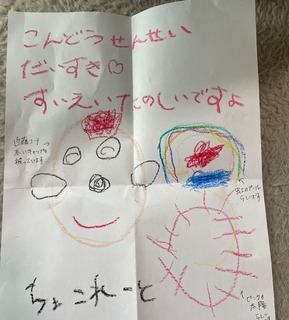 こんどうせんせい
だいすき♡
すいえいたのしいですよ
近藤コーチ
赤いキャップを
被っています
虹のプール
らしいです
ちょこれーと
ピンクの
太陽
らしい